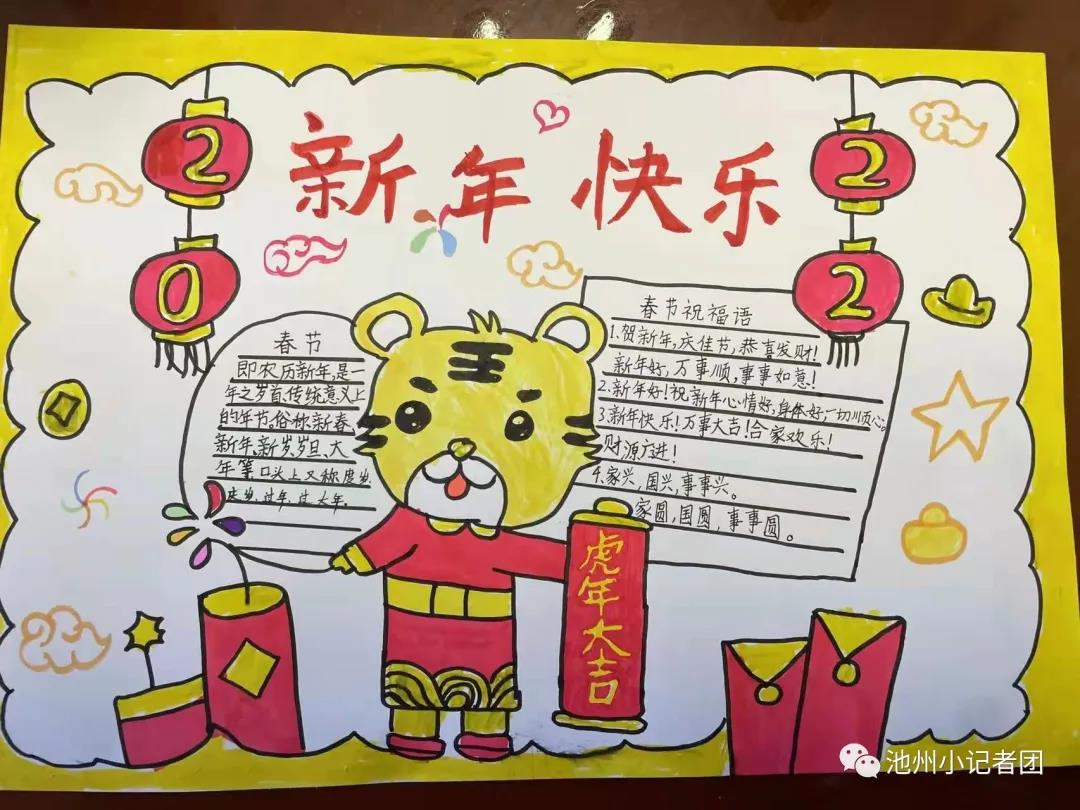 新年快乐
2
0
2
2
春节
即农历新年,是一
年之岁首、传统意义上
的年节。俗称新春
新年、新岁、岁旦、大
年等,口头上又称度岁、
庆岁、过年、过大年。
春节祝福语
1.贺新年,庆佳节,恭喜发财!
新年好,万事顺,事事如意!
2.新年好!祝新年心情好,身体好,一切顺心。
3.新年快乐!万事大吉!合家欢乐!
财源广进!
4.家兴,国兴,事事兴。
家圆,国圆,事事圆。
王
虎年大吉
池州小记者团